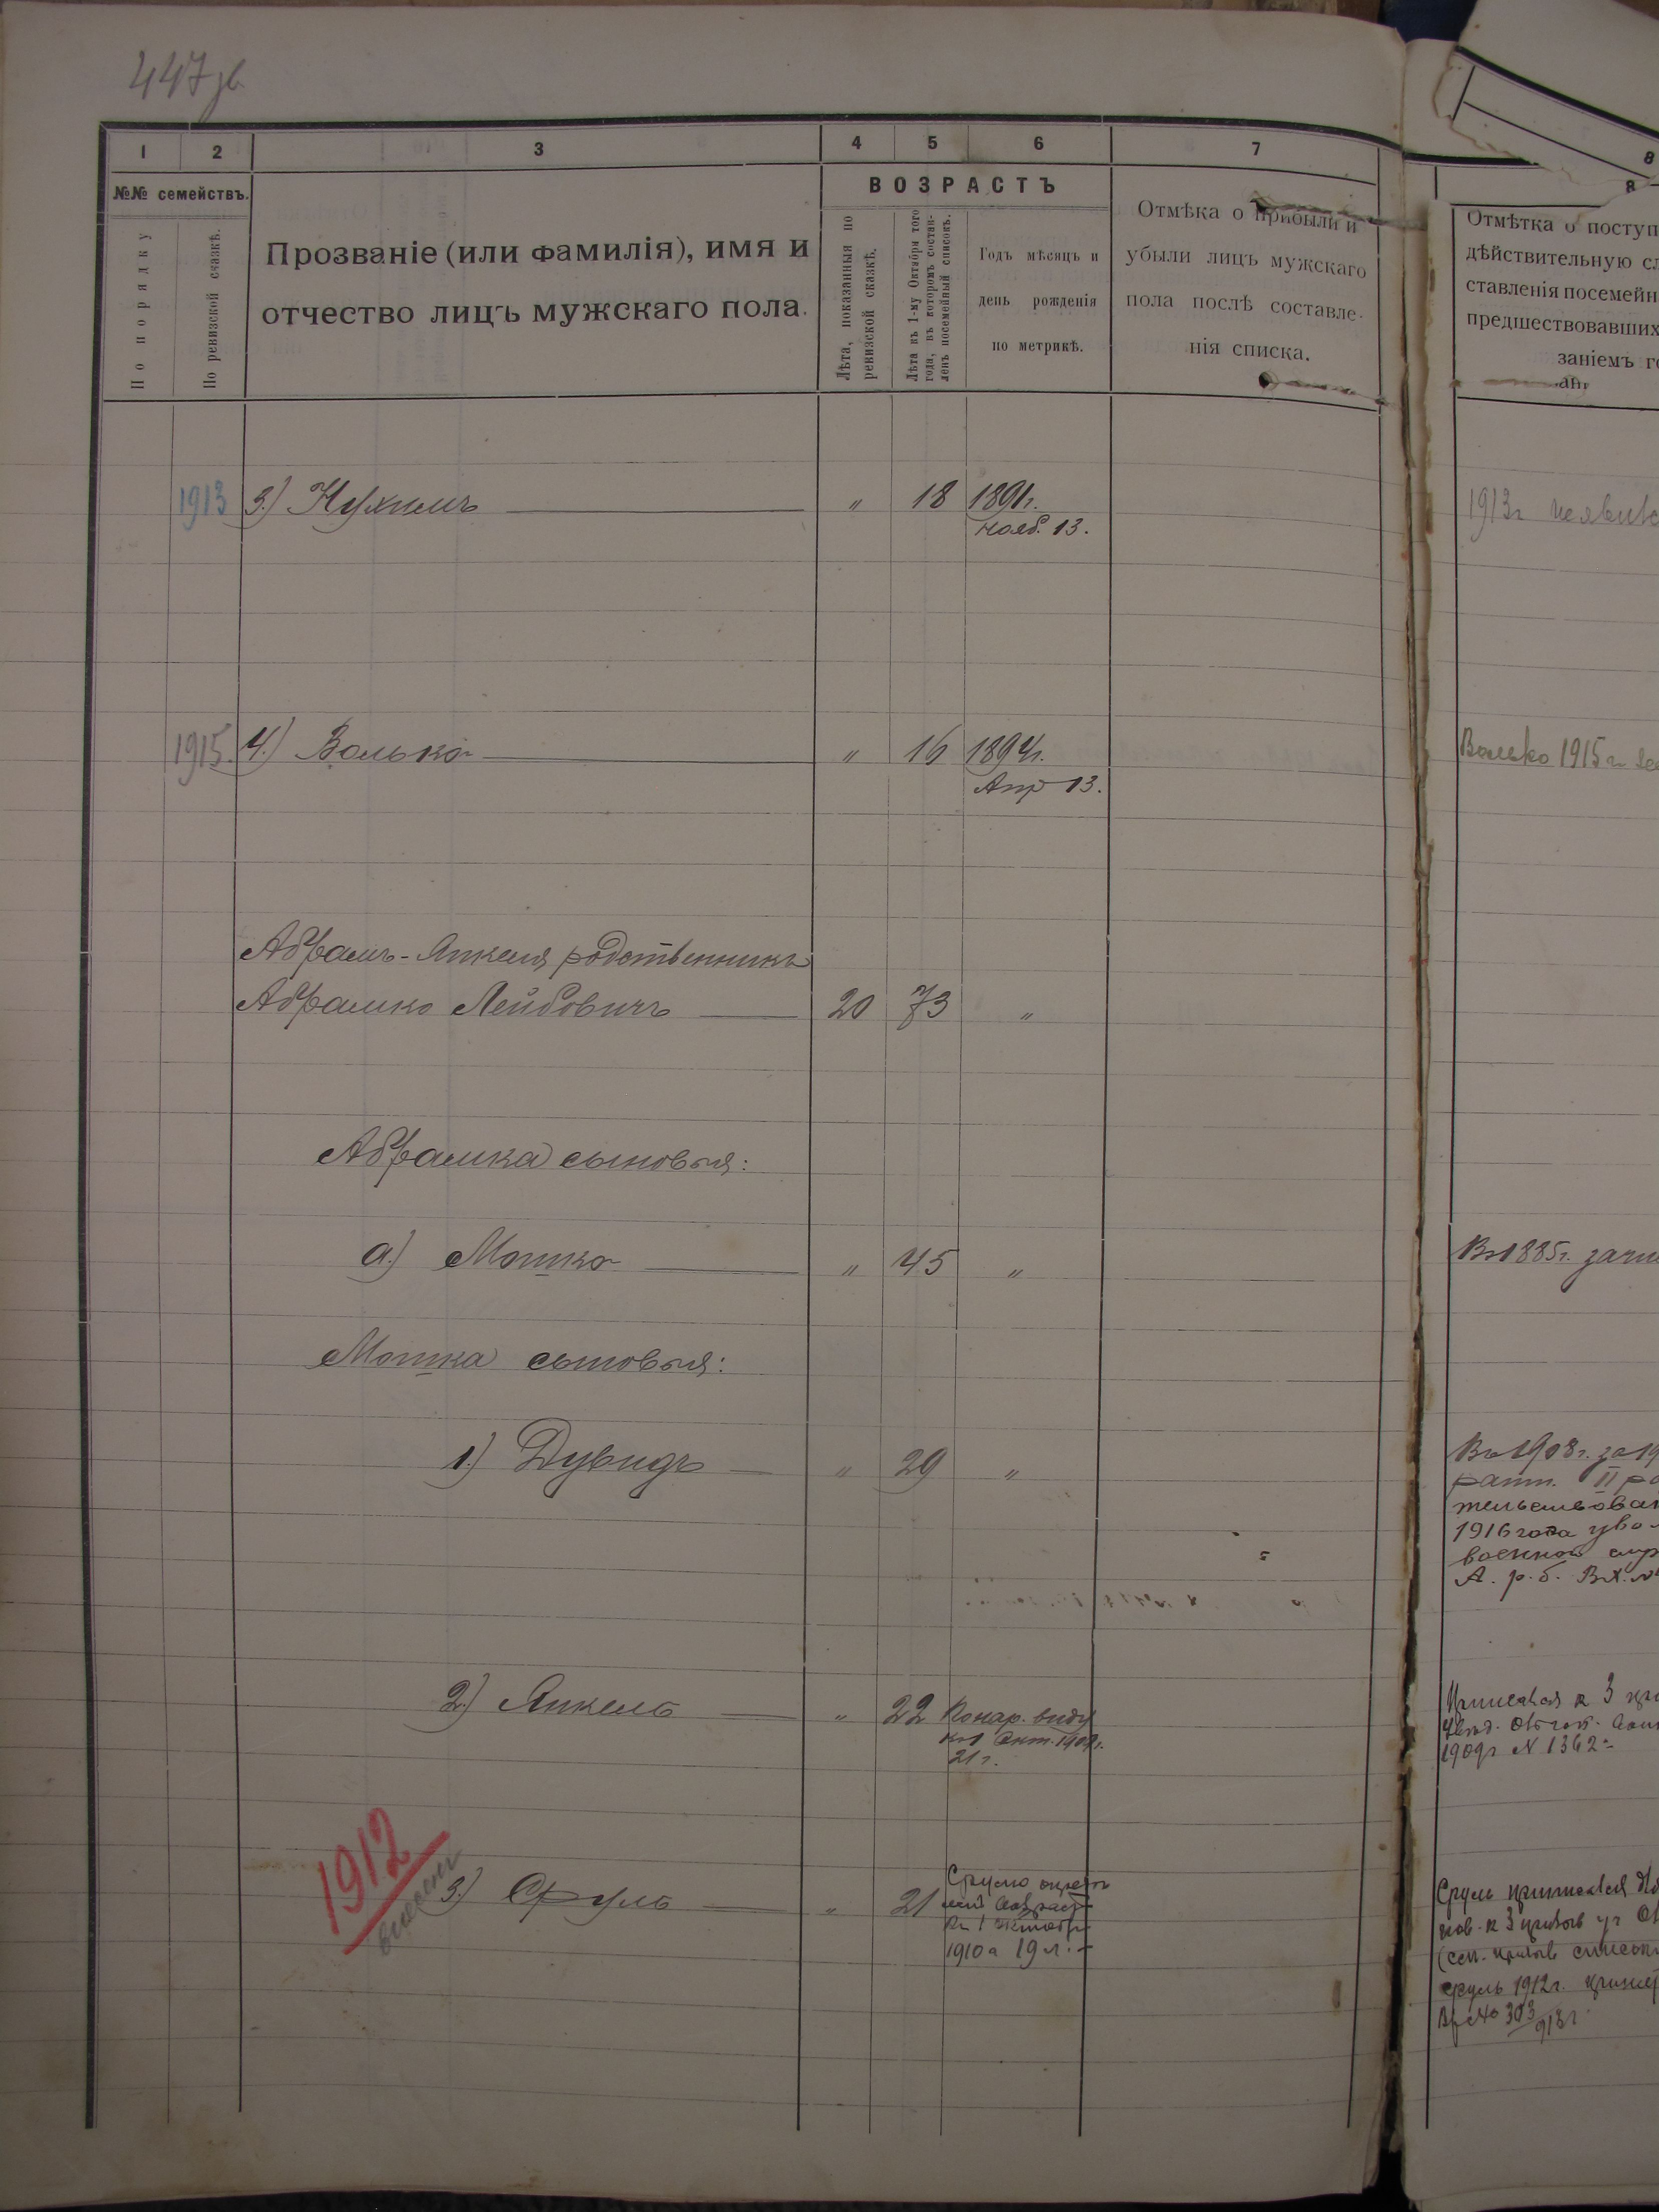 447
1 2 3 4 5 6 7
№№ семействъ.
По порядку
По ревизской сказкѣ.
Прозваніе (или фамилія), имя и
отчество лицъ мужскаго пола.
ВОЗРАСТЪ
Лѣта, показанныя по
ревизской сказкѣ.
Лѣта къ 1-му Октября того
года, въ которомъ состав-
ленъ посемейный списокъ.
Годъ мѣсяцъ и
день рожденія
по метрикѣ.
Отмѣка о прибыли и
убыли лицъ мужскаго
пола послѣ составле-
нія списка.
8
8
Отмѣтка о поступ
дѣйствительную сл
ставленія посемейн
предшествовавшихъ
заніемъ го
1913 3.) Нухимъ " 18 1891г.
нояб. 13.
1913г неявивс
1915. 4.) Волько " 16 1894г.
Апр 13.
Волько 1915г
Абрамъ-Янкеля родственникъ
Абрамко Лейбовичъ 20 73 "
Абрамка сыновья:
а.) Мошко " 45 "
Въ 1885г. зачи
Мошка сыновья:
1.) Дувидъ " 29 "
Въ 1908г. за 19
ратн. II ра
тельствован
1916 года уво
военной
А. р. б. Вх. №
2.) Янкель " 22 По нар. виду
къ 1 Окт. 1908г.
21 г.
к 3
1909г N 1362
1912
внесенъ
3.) Сруль " 21
Срулю опредѣ
ленъ возраст
къ 1 октября
1910 а 19 л.
Сруль приписался
к 3 призыв уч
(сем. призыв списокъ
Сруль 1912г.
№ 303/913г